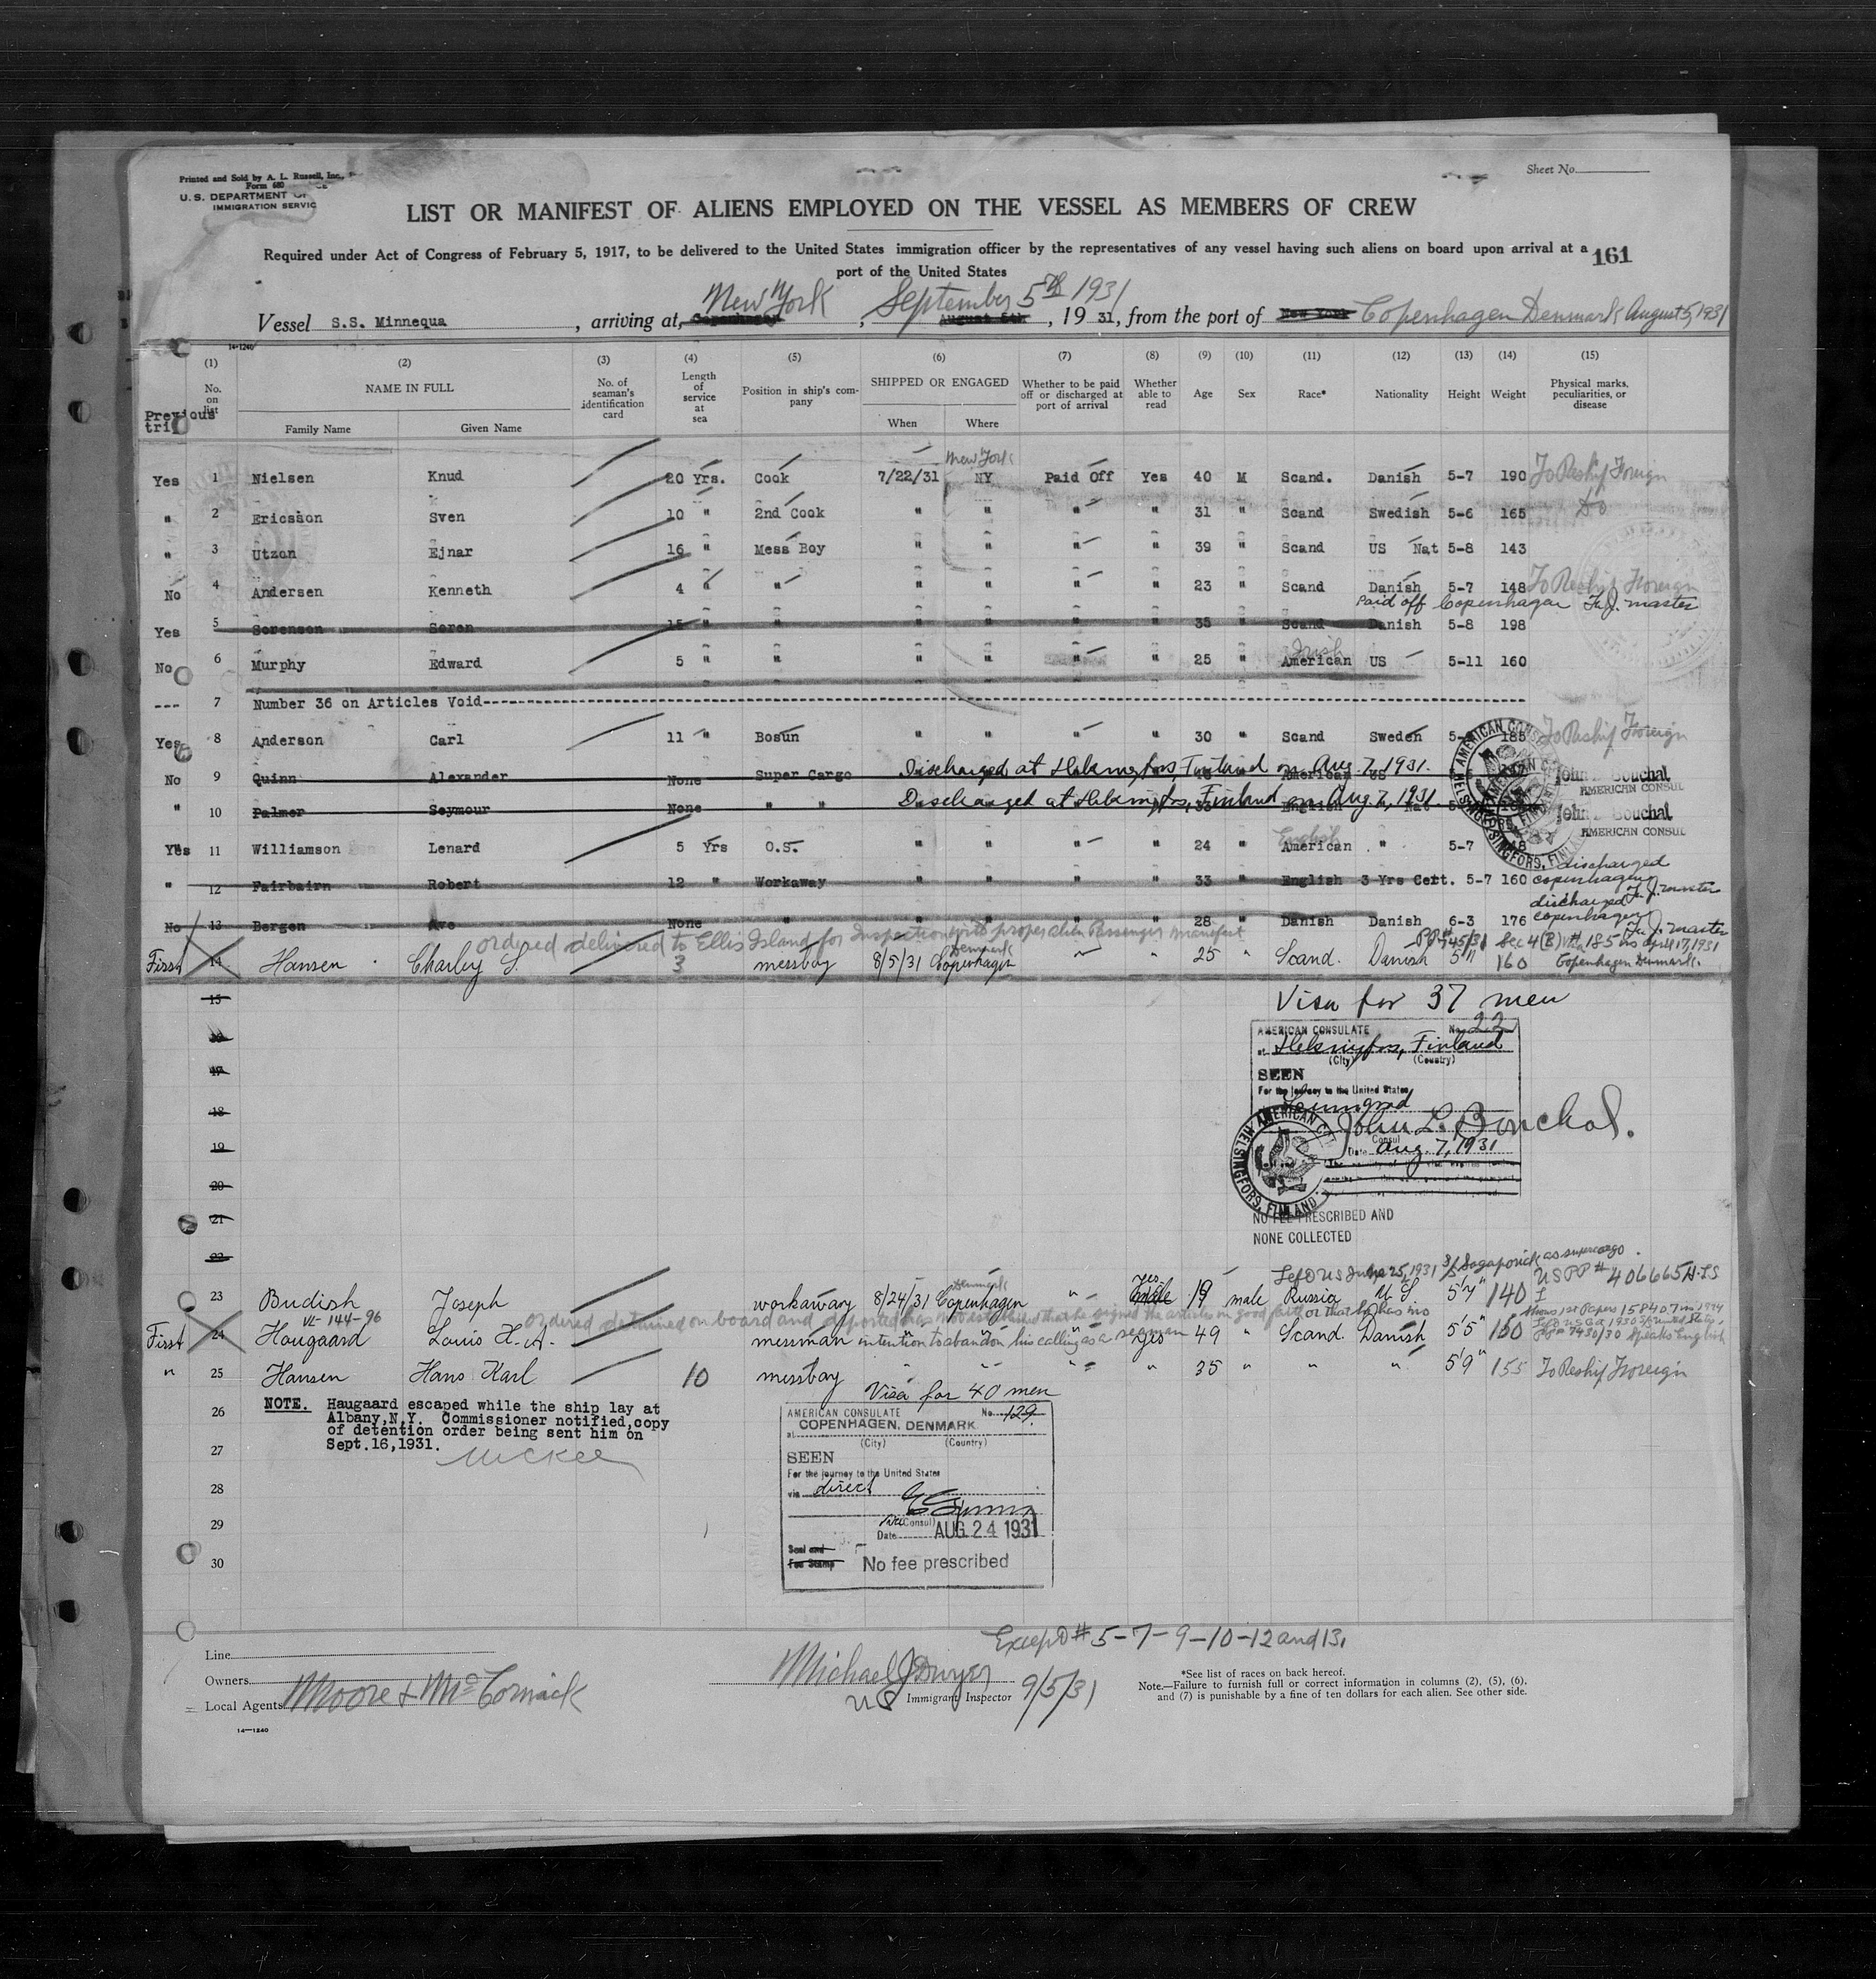 Printed and Sold by A. L. Russell, Inc.,
Form 680
U. S. DEPARTMENT OF
IMMIGRATION SERVIC
Sheet No.
LIST OR MANIFEST OF ALIENS EMPLOYED ON THE VESSEL AS MEMBERS OF CREW
Required under Act of Congress of February 5, 1917, to be delivered to the United States immigration officer by the representatives of any vessel having such aliens on board upon arrival at a
port of the United States
161
New York September 5th 1931
Vessel S.S. Minnequa, arriving at, Copenhagen, August 5th, 1931, from the port of New York Copenhagen Denmark August 5, 1931
14-1240
(1) (2) (3) (4) (5) (6) (7) (8) (9) (10) (11) (12) (13) (14) (15)
No. on list NAME IN FULL No. of seaman's identification card Length of service at sea Position in ship's company SHIPPED OR ENGAGED Whether to be paid off or discharged at port of arrival Whether able to read Age Sex Race* Nationality Height Weight Physical marks, peculiarities, or disease
Previous trip
Family Name Given Name When Where
New York
Yes 1 Nielsen Knud 20 Yrs. Cook 7/22/31 NY Paid Off Yes 40 M Scand. Danish 5-7 190 To Reship Foreign
" 2 Ericsson Sven 10 " 2nd Cook " " " " 31 " Scand Swedish 5-6 165 Do
" 3 Utzon Ejnar 16 " Mess Boy " " " " 39 " Scand US Nat 5-8 143
No 4 Andersen Kenneth 4 " " " " " " 23 " Scand Danish 5-7 148 To Reship Foreign
Paid off Copenhagen F.J. master
Yes 5 Sorenson Soren 15 " " " " " " 35 " Scand Danish 5-8 198
Irish
No 6 Murphy Edward 5 " " " " " " 25 " American US 5-11 160
--- 7 Number 36 on Articles Void
Yes 8 Anderson Carl 11 " Bosun " " " " 30 " Scand Sweden 5- 185 To Reship Foreign
No 9 Quinn Alexander None Super Cargo Discharged at Helsingfors, Finland on Aug. 7, 1931. American US
John L. Bouchal
AMERICAN CONSUL
" 10 Palmer Seymour None " " Discharged at Helsingfors, Finland on Aug. 7, 1931. English Nat
John L. Bouchal
AMERICAN CONSUL
AMERICAN CONSULATE HELSINGFORS, FINLAND
English
Yes 11 Williamson Lenard 5 Yrs O.S. " " " " 24 " American " 5-7 148
" 12 Fairbairn Robert 12 " Workaway " " " " 33 " English 3 Yrs Cert. 5-7 160 discharged copenhagen F.J. master
No 13 Bergen Ave None " " " " " 28 " Danish Danish 6-3 176 discharged copenhagen F.J. master
ordered delivered to Ellis Island for Inspection onto proper alien Passenger manifest
Denmark
First 14 Hansen Charley S. 3 messboy 8/5/31 Copenhagen " " 25 " Scand. Danish 5'11 160 PP# 745/31 Sec 4(B) Visa # 185 iss April 17, 1931 Copenhagen Denmark.
15
Visa for 37 men
16
AMERICAN CONSULATE No. 22
at Helsingfors, Finland
(City) (Country)
17
SEEN
For the journey to the United States
Leningrad
18
John L. Bouchal.
Consul
19
Date Aug. 7, 1931
AMERICAN CONSULATE HELSINGFORS, FINLAND
20
21
NO FEE PRESCRIBED AND
NONE COLLECTED
22
Left US June 25, 1931 S/S Sagaporick as supercargo.
USPP # 406665
Denmark
23 Budish Joseph workaway 8/24/31 Copenhagen " Yes 19 male Russia US 5'7" 140
ordered detained on board and deported has not established that he signed the articles in good faith or that he has no
intention to abandon his calling as a seaman
VL-144-96
First 24 Haugaard Louis H. A. messman " " " yes 49 " Scand. Danish 5'5" 150
" 25 Hansen Hans Karl 10 messboy " " " " 35 " " " 5'9" 155 To Reship Foreign
26
NOTE. Haugaard escaped while the ship lay at
Albany,N.Y. Commissioner notified,copy
of detention order being sent him on
Sept.16,1931.
McKee
Visa for 40 men
AMERICAN CONSULATE No. 129
at COPENHAGEN, DENMARK
(City) (Country)
27
SEEN
For the journey to the United States
28
via direct
29
Vice Consul
Date AUG 24 1931
30
Seal and
Fee Stamp
No fee prescribed
Except # 5-7-9-10-12 and 13,
Line
Owners
Local Agents Moore & McCormack
Michael J Dwyer
US Immigrant Inspector 9/5/31
*See list of races on back hereof.
Note.—Failure to furnish full or correct information in columns (2), (5), (6),
and (7) is punishable by a fine of ten dollars for each alien. See other side.
14—1240